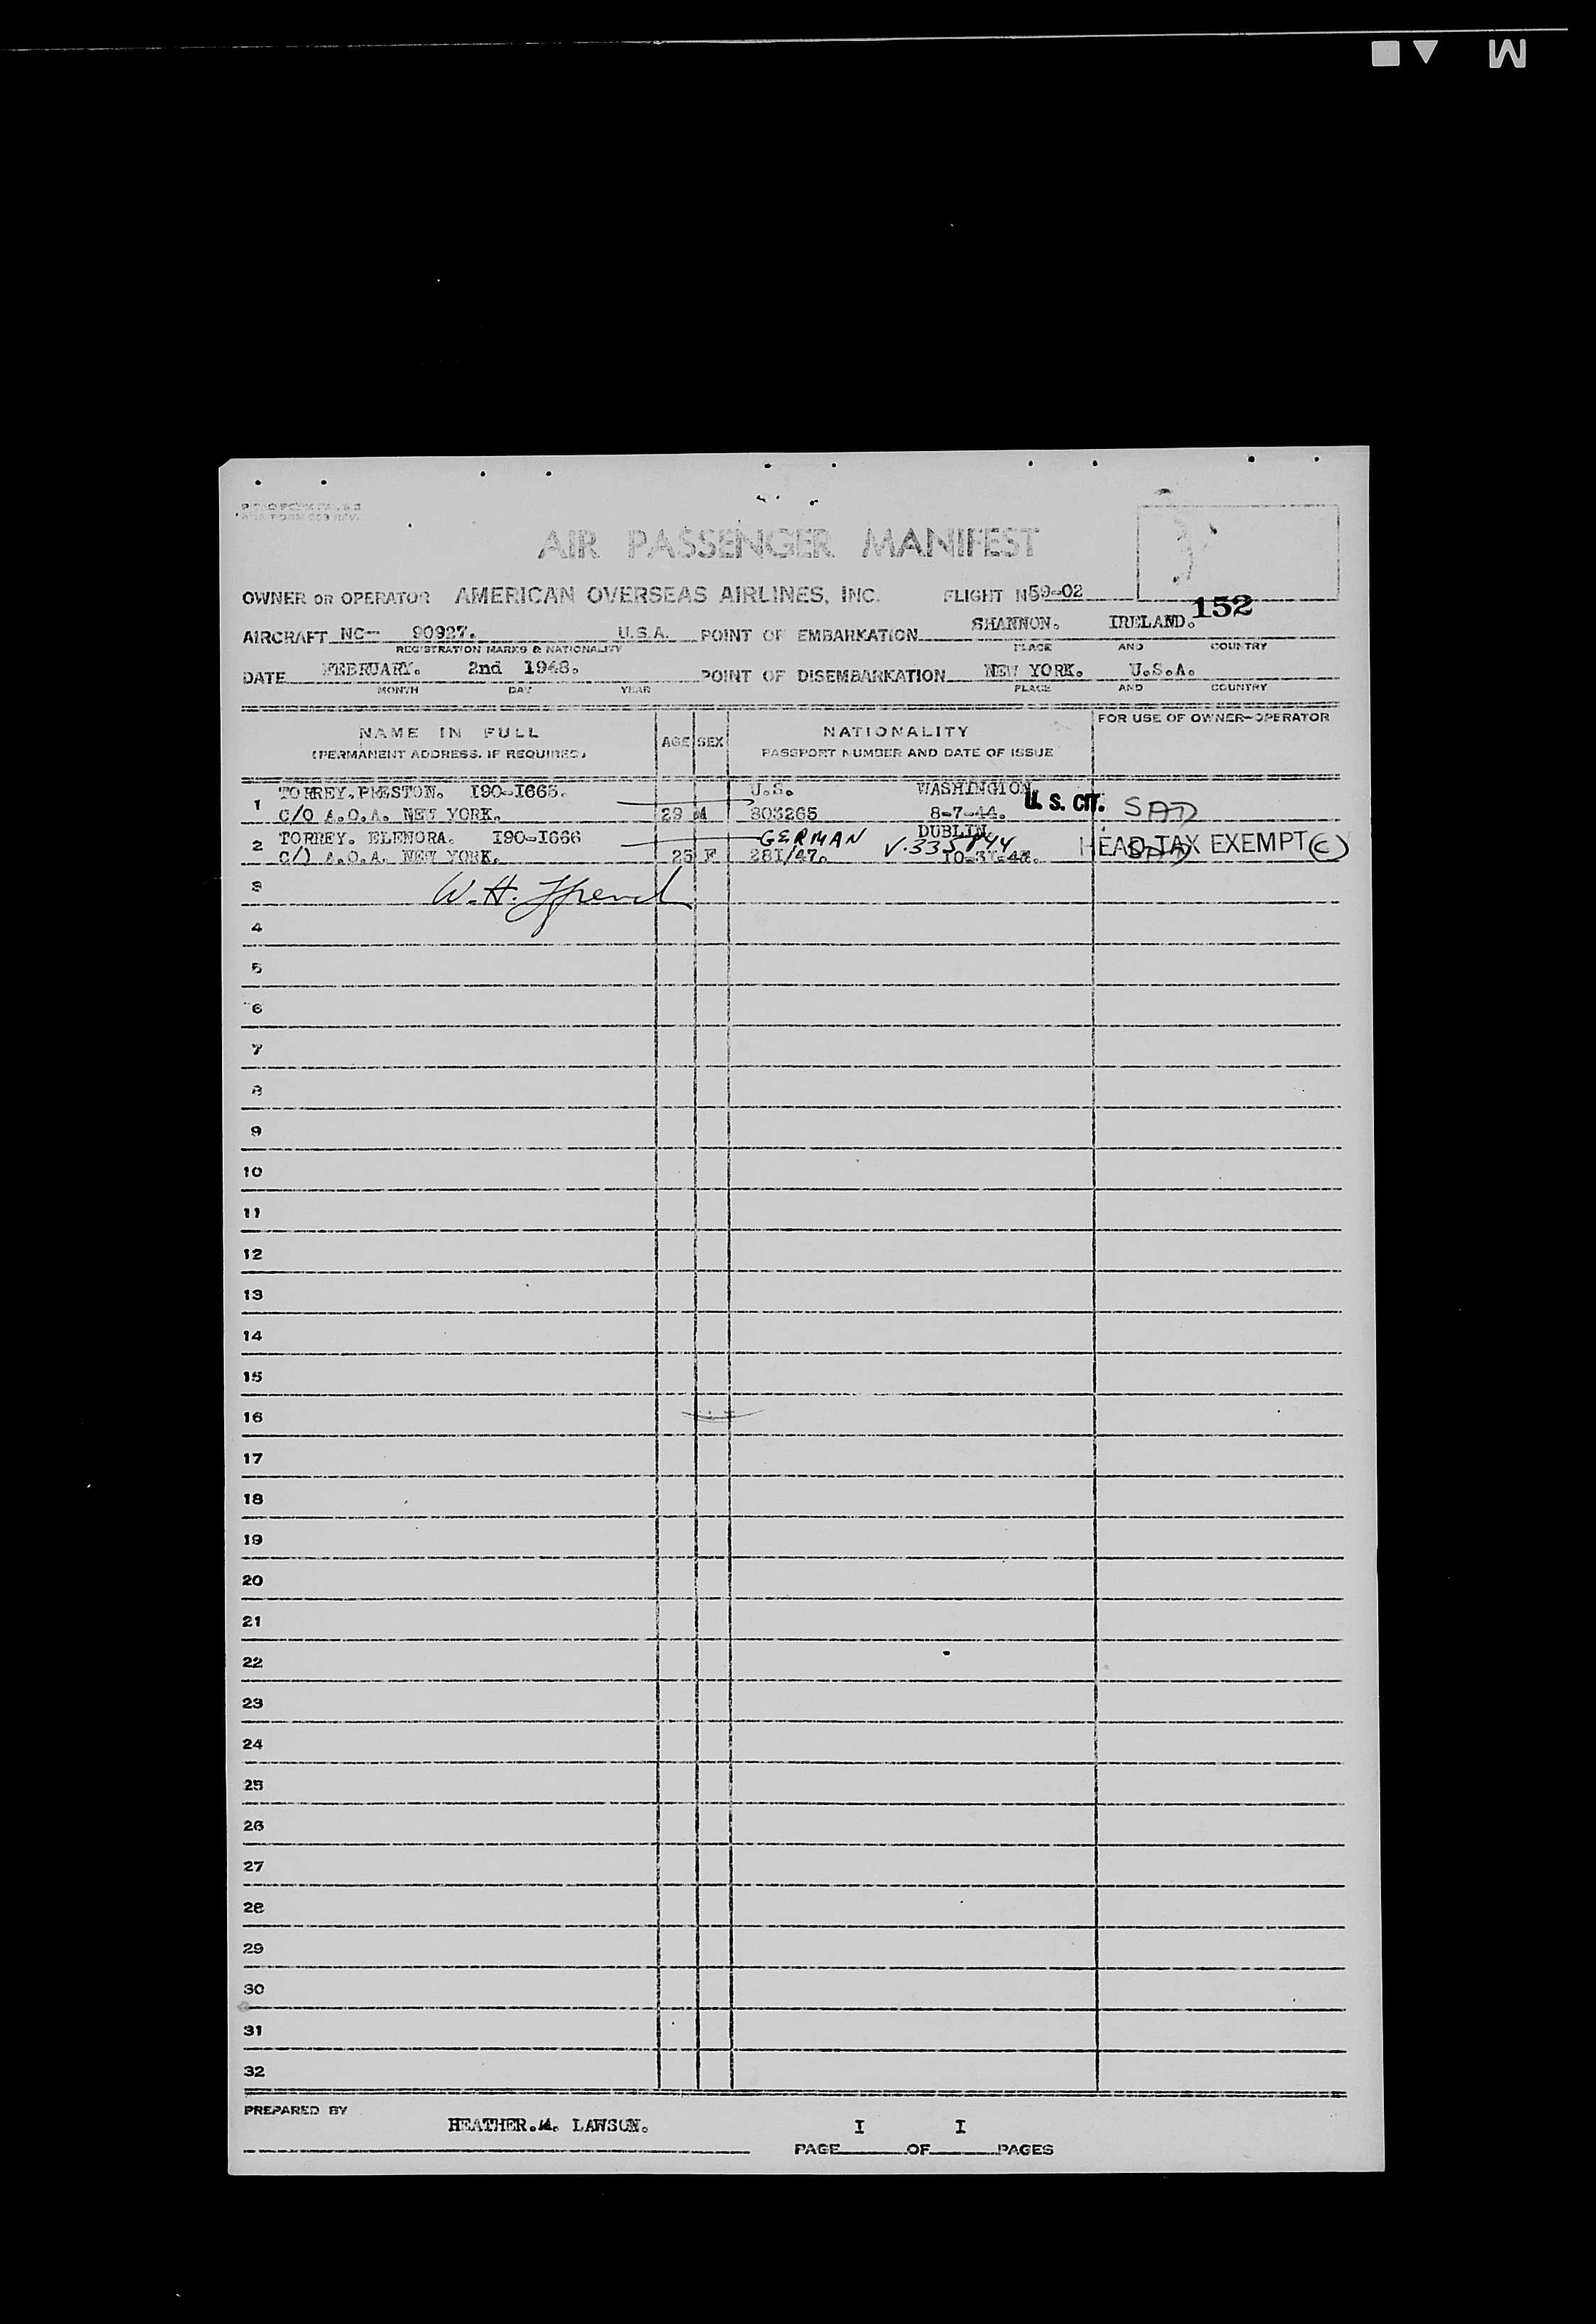 M
AIR PASSENGER MANIFEST
OWNER OR OPERATOR AMERICAN OVERSEAS AIRLINES, INC. FLIGHT N59-02
152
AIRCRAFT NC- 90927. U.S.A. POINT OF EMBARKATION SHANNON. IRELAND.
REGISTRATION MARKS & NATIONALITY PLACE AND COUNTRY
DATE FEBRUARY. 2nd 1948. POINT OF DISEMBARKATION NEW YORK. U.S.A.
MONTH DAY YEAR PLACE AND COUNTRY
NAME IN FULL
(PERMANENT ADDRESS, IF REQUIRED)
AGE SEX
NATIONALITY
PASSPORT NUMBER AND DATE OF ISSUE
FOR USE OF OWNER-OPERATOR
TORREY.PRESTON. I90-I665. U.S. WASHINGTON
1 C/O A.O.A. NEW YORK. 29 M 803265 8-7-44. U. S. CIT. SAD
TORREY. ELENORA. I90-I666 GERMAN DUBLIN
2 C/) A.O.A. NEW YORK. 25 F 28I/47. HEAD TAX EXEMPT (C)
3 W.H.
4
5
6
7
8
9
10
11
12
13
14
15
16
17
18
19
20
21
22
23
24
25
26
27
28
29
30
31
32
PREPARED BY
HEATHER.M. LAWSON.
PAGE I OF I PAGES